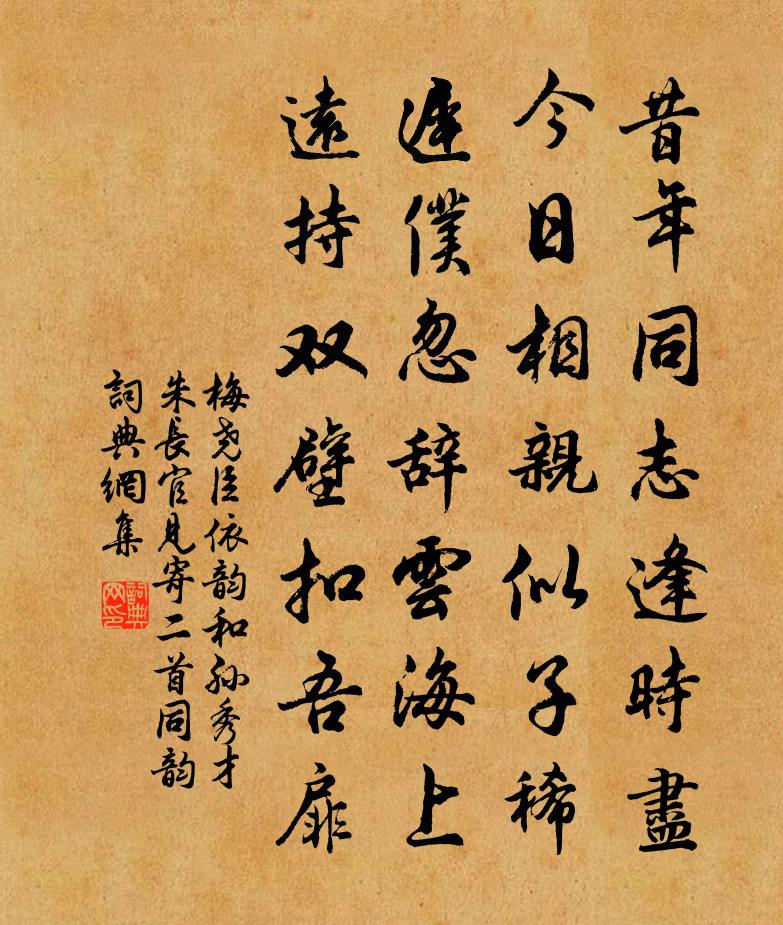 昔年同志逢時盡
今日相親似子稀
健僕忽辞雲海上
遠持双璧扣吾扉
梅堯臣依韵和孫秀才
朱長官見寄二首同韵
詞典網集
詞典网印